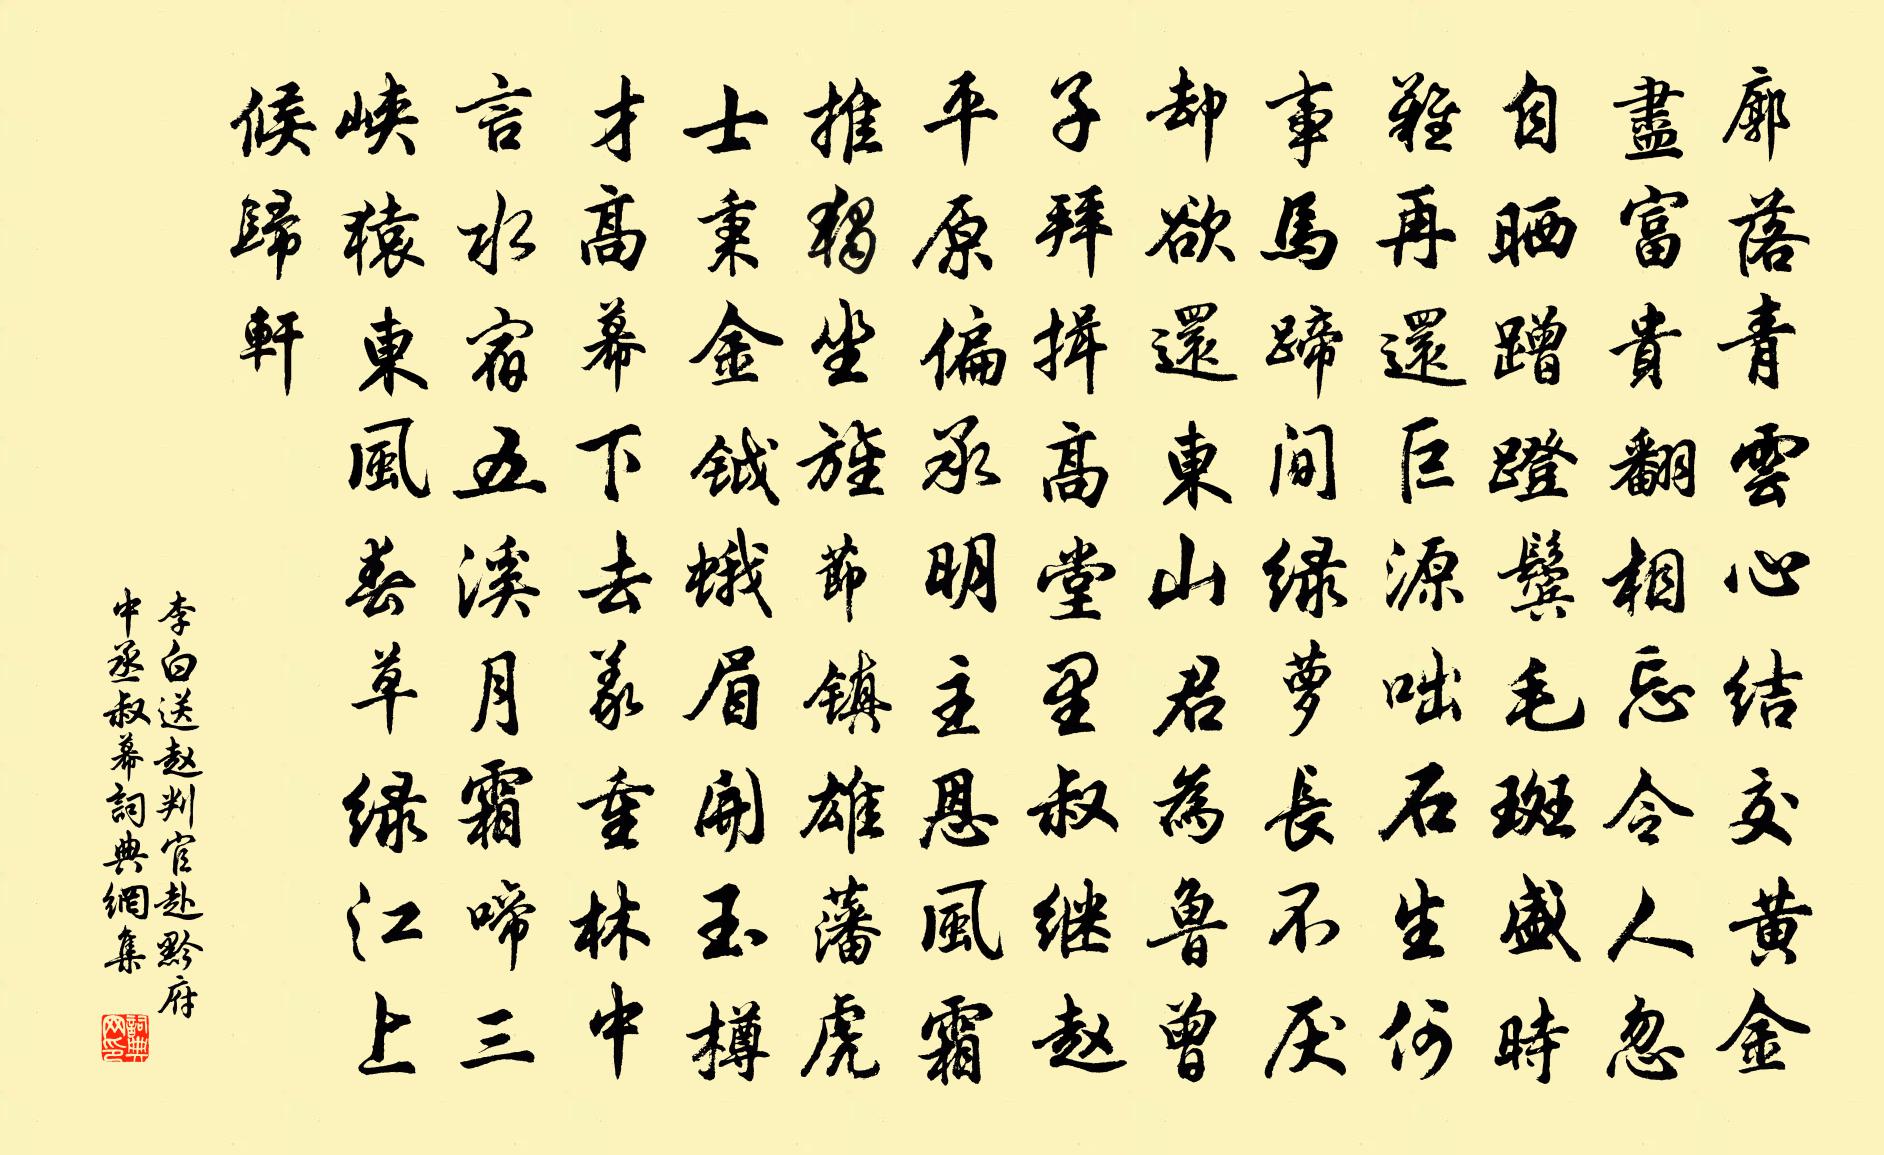 廓落青雲心结交黄金
盡富貴翻相忘令人忽
自晒蹭蹬鬓毛斑盛時
難再還巨源咄石生何
事馬蹄间绿萝長不厌
却欲還東山君為魯曾
子拜揖高堂里叔继赵
平原偏承明主恩風霜
推獨坐旌節镇雄藩虎
士秉金钺蛾眉開玉樽
才高幕下去義重林中
言水宿五溪月霜啼三
峽猿東風春草绿江上
候歸軒
李白送赵判官赴黔府
中丞叔幕詞典網集
詞典网印